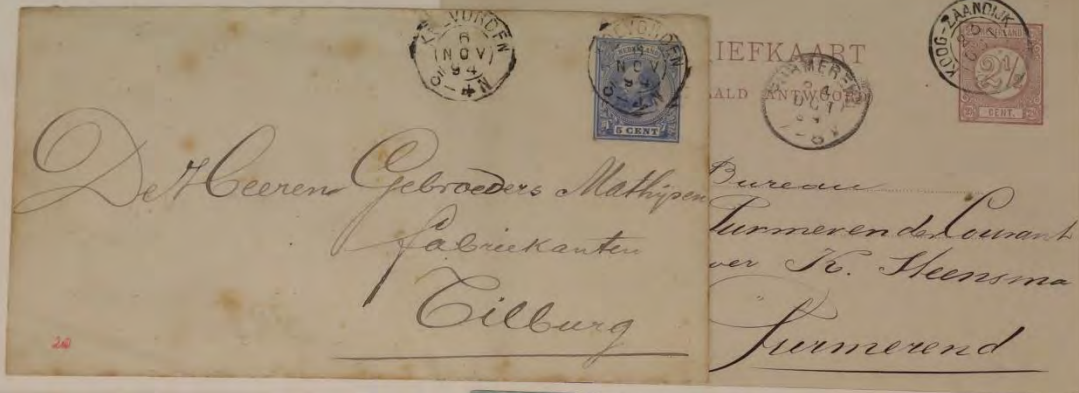 6
NOV
94
5 CENT
De Heeren Gebroeders Mathijsen
fabriekanten
Tilburg
20
IEFKAART
AALD ANTWOO
KOOG-ZAANDIJK
2½
CENT.
Bureau
Purmerender Courant
K. Heensma
Purmerend